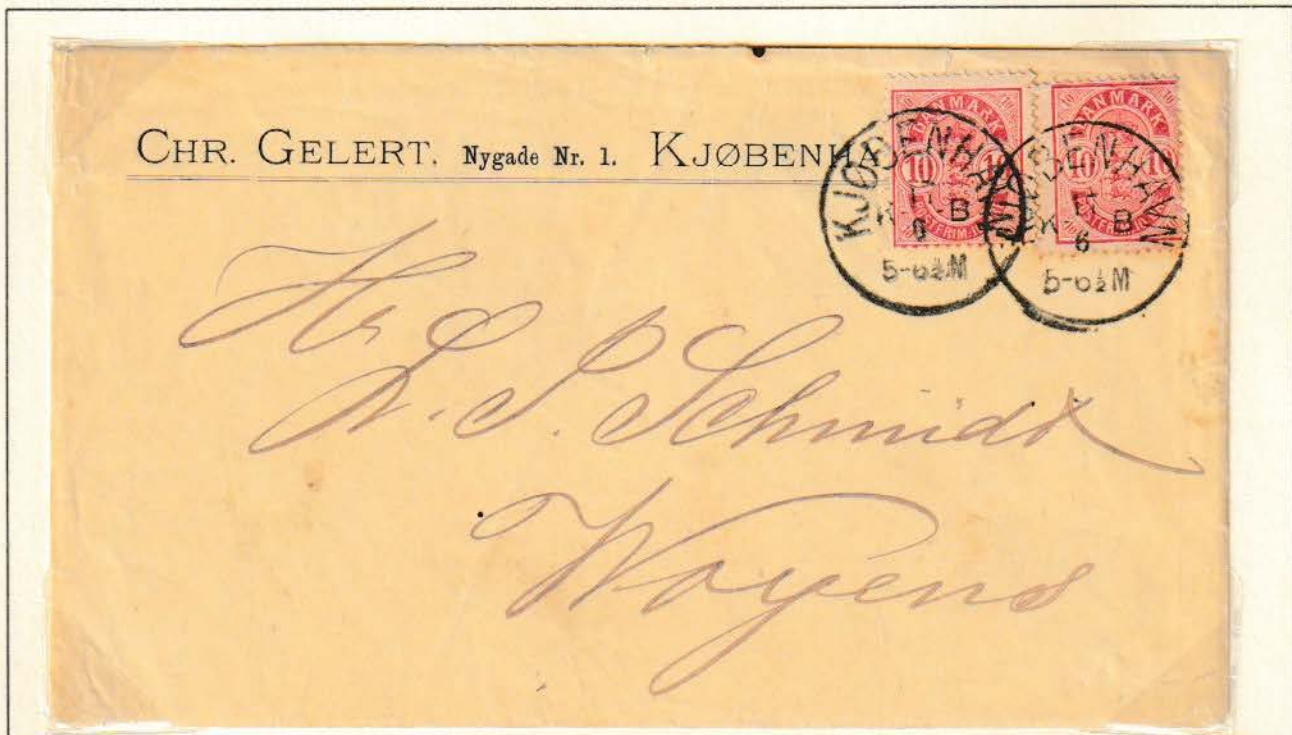 CHR. GELERT. Nygade Nr. 1. KJØBENHA
DANMARK
10 10
POSTFRIM. 10 ØRE
DANMARK
10 10
POSTFRIM. 10 ØRE
KJØBENHAVN
K. B
6
5-6½M
KJØBENHAVN
K. B
6
5-6½M
Hr
S. Schmidt
Woyens